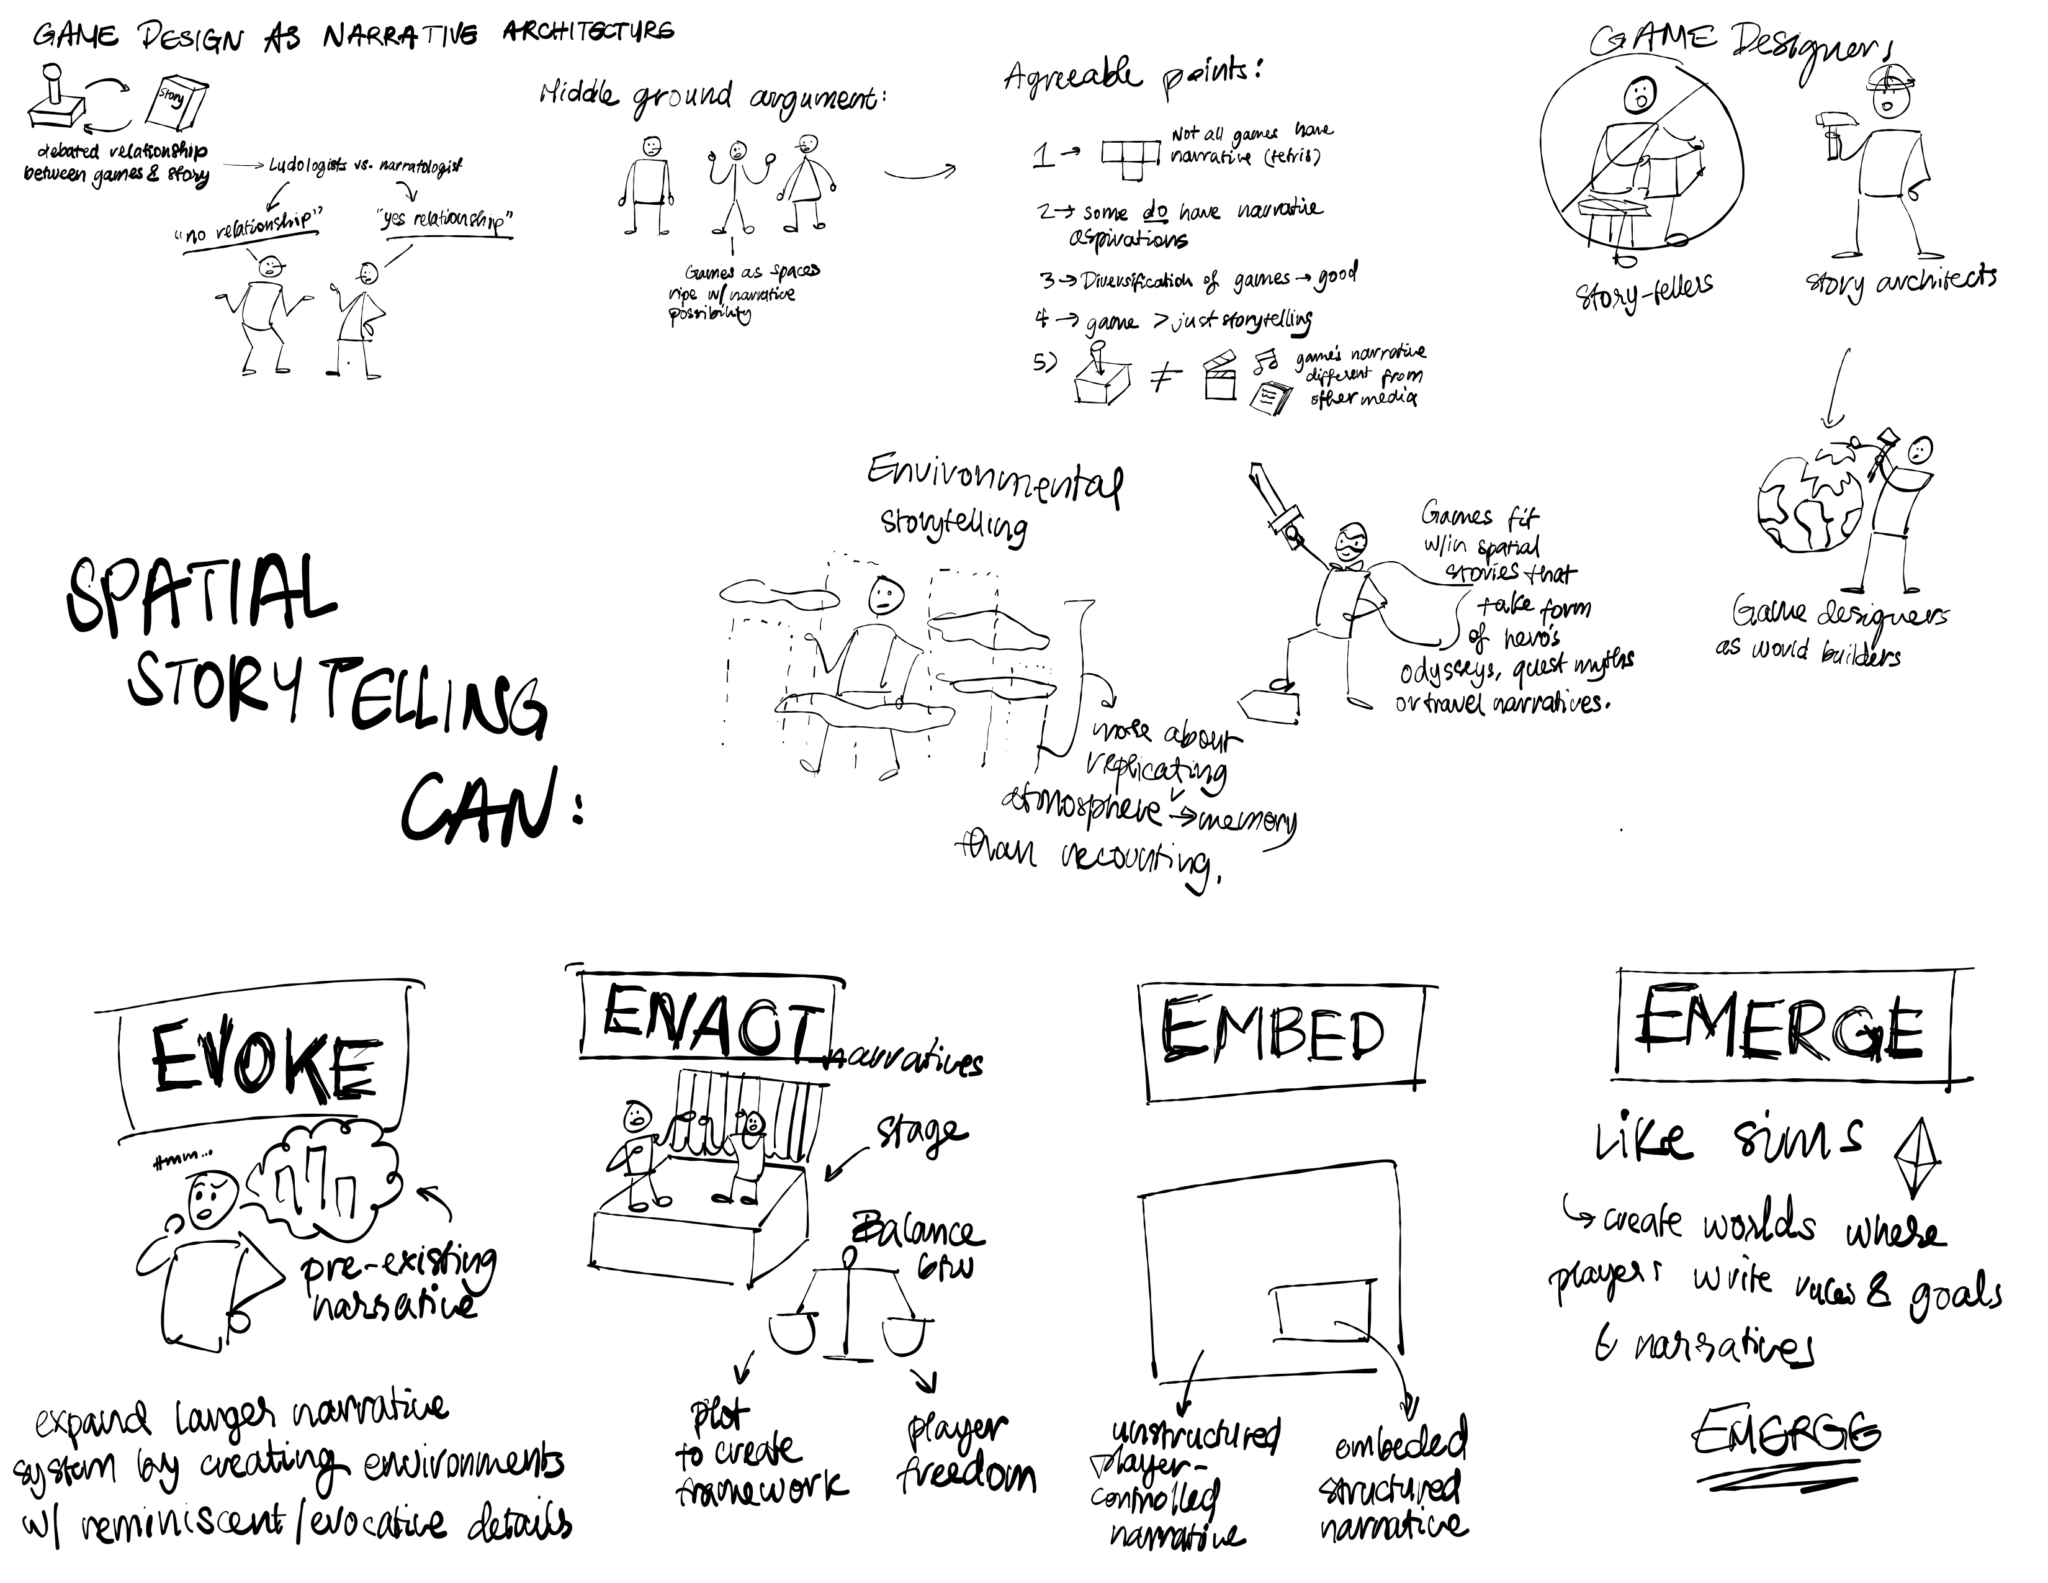 GAME DESIGN AS NARRATIVE ARCHITECTURE
Story
debated relationship
between games & story
Ludologists vs. narratologist
"no relationship"
"yes relationship"
Middle ground argument:
Games as spaces
ripe w/ narrative
possibility
Agreeable points:
1 → Not all games have
narrative (tetris)
2 → some do have narrative
aspirations
3 → Diversification of games → good
4 → game > just storytelling
5) ≠ game's narrative
different from
other media
GAME Designers
story-tellers
story architects
Game designers
as world builders
Environmental
storytelling
more about
replicating
atmosphere → memory
than recounting.
Games fit
w/in spatial
stories that
take form
of hero's
odysseys, quest myths
or travel narratives.
SPATIAL
STORYTELLING
CAN:
EVOKE
Hmm...
pre-existing
narrative
expand larger narrative
system by creating environments
w/ reminiscent/evocative details
ENACT
narratives
stage
Balance
btw
plot
to create
framework
player
freedom
EMBED
unstructured
player-
controlled
narrative
embeded
structured
narrative
EMERGE
Like sims
↳ create worlds where
players write rules & goals
& narratives
EMERGE